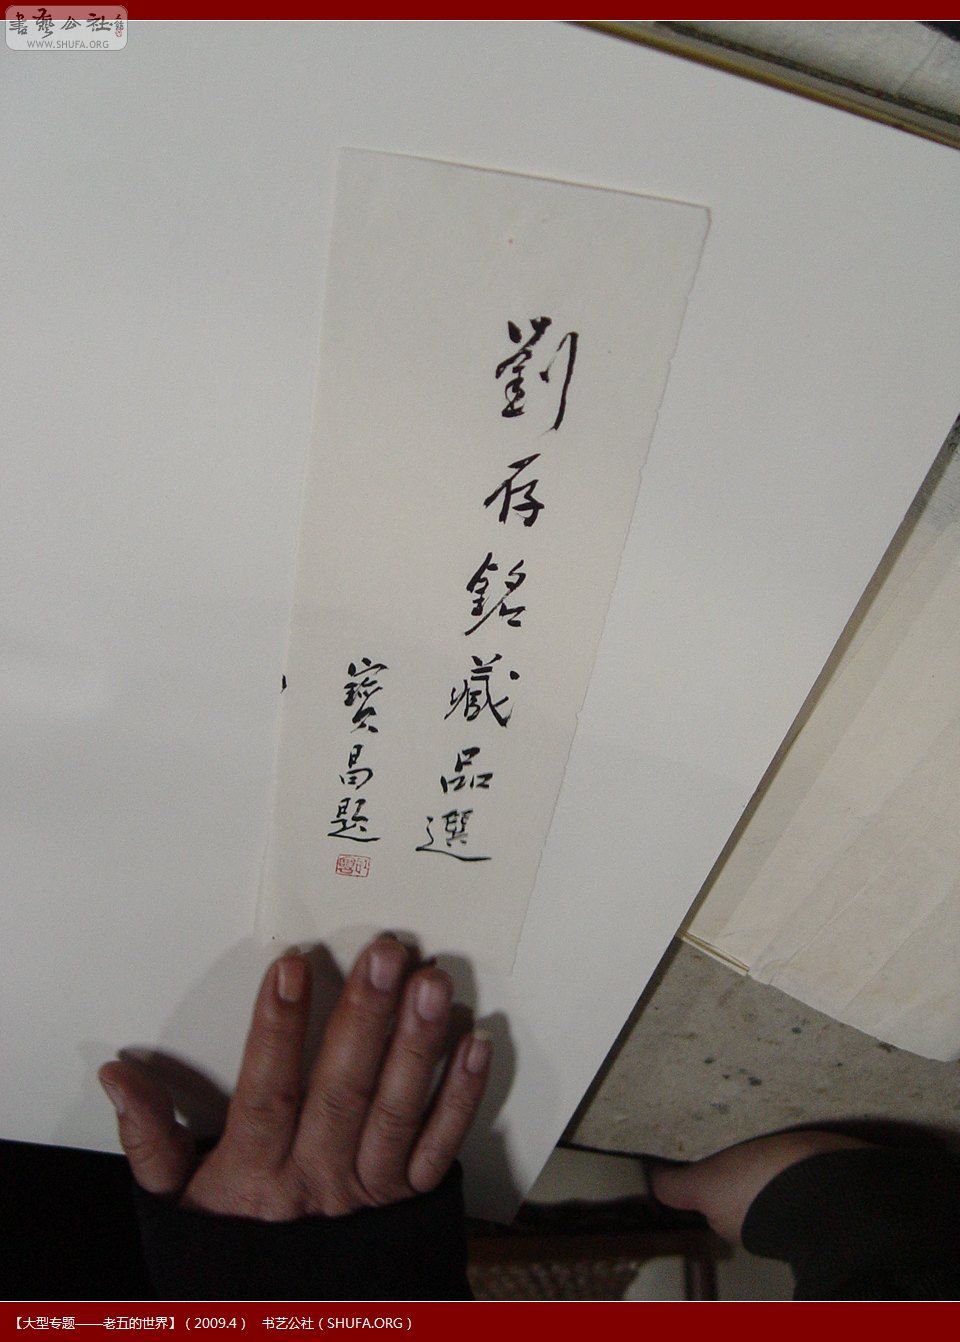 書藝公社
WWW.SHUFA.ORG
劉存銘藏品選
寶昌题
【大型专题——老五的世界】（2009.4） 书艺公社（SHUFA.ORG）